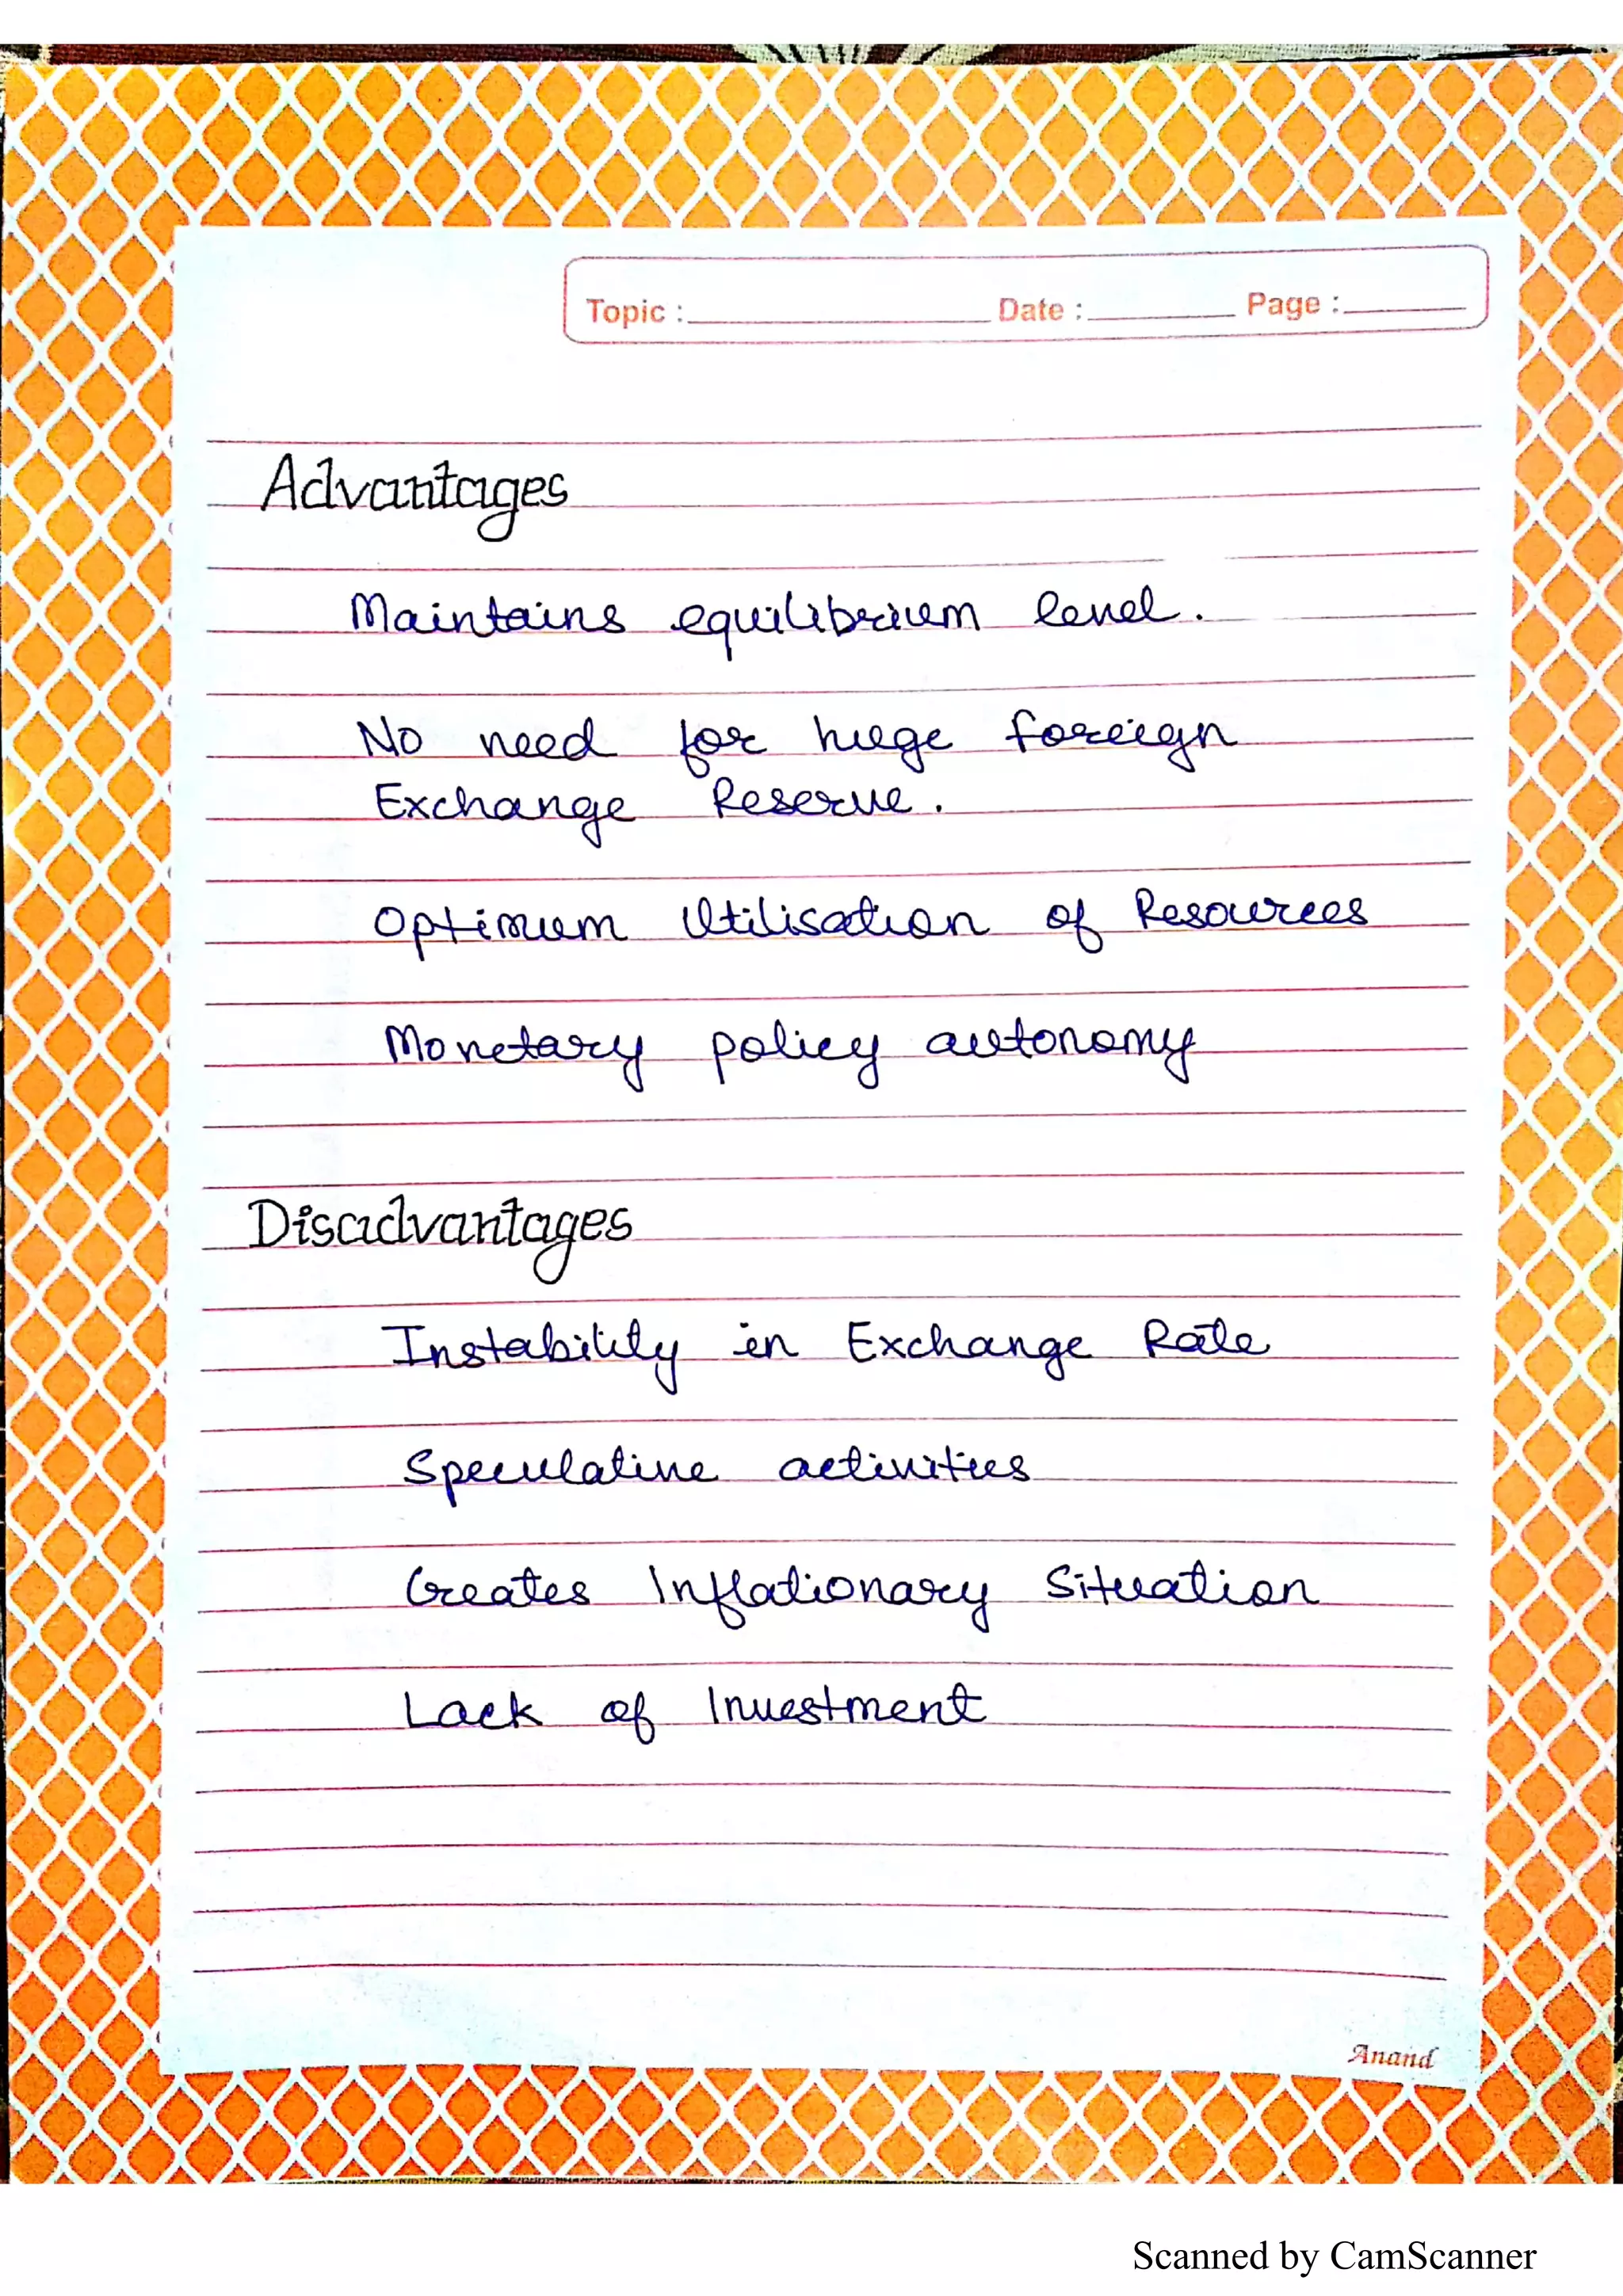 Topic : Date : Page :
Advantages
Maintains equilibrium level.
No need for huge foreign
Exchange Reserve.
Optimum Utilisation of Resources
Monetary policy autonomy
Disadvantages
Instability in Exchange Rate
Speculative activities
Creates Inflationary Situation
Lack of Investment
Anand
Scanned by CamScanner